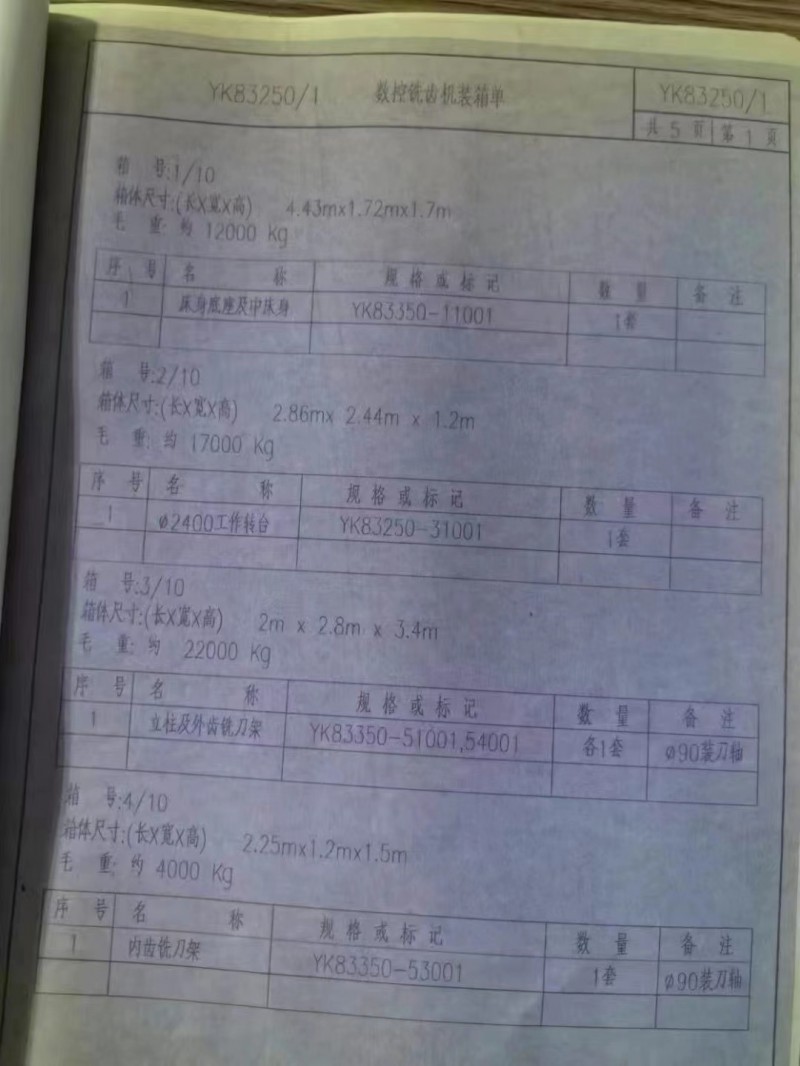 YK83250/1 数控铣齿机装箱单 YK83250/1
共 5 页 第 1 页
箱 号:1/10
箱体尺寸:(长X宽X高) 4.43mx1.72mx1.7m
毛 重: 约 12000 Kg
序 号 名 称 规 格 或 标 记 数 量 备 注
1 床身底座及中床身 YK83350-11001 1套
箱 号:2/10
箱体尺寸:(长X宽X高) 2.86mx 2.44m x 1.2m
毛 重: 约 17000 Kg
序 号 名 称 规 格 或 标 记 数 量 备 注
1 ø2400工作转台 YK83250-31001 1套
箱 号:3/10
箱体尺寸:(长X宽X高) 2m x 2.8m x 3.4m
毛 重: 约 22000 Kg
序 号 名 称 规 格 或 标 记 数 量 备 注
1 立柱及外齿铣刀架 YK83350-51001,54001 各1套 ø90装刀轴
箱 号:4/10
箱体尺寸:(长X宽X高) 2.25mx1.2mx1.5m
毛 重: 约 4000 Kg
序 号 名 称 规 格 或 标 记 数 量 备 注
1 内齿铣刀架 YK83350-53001 1套 ø90装刀轴